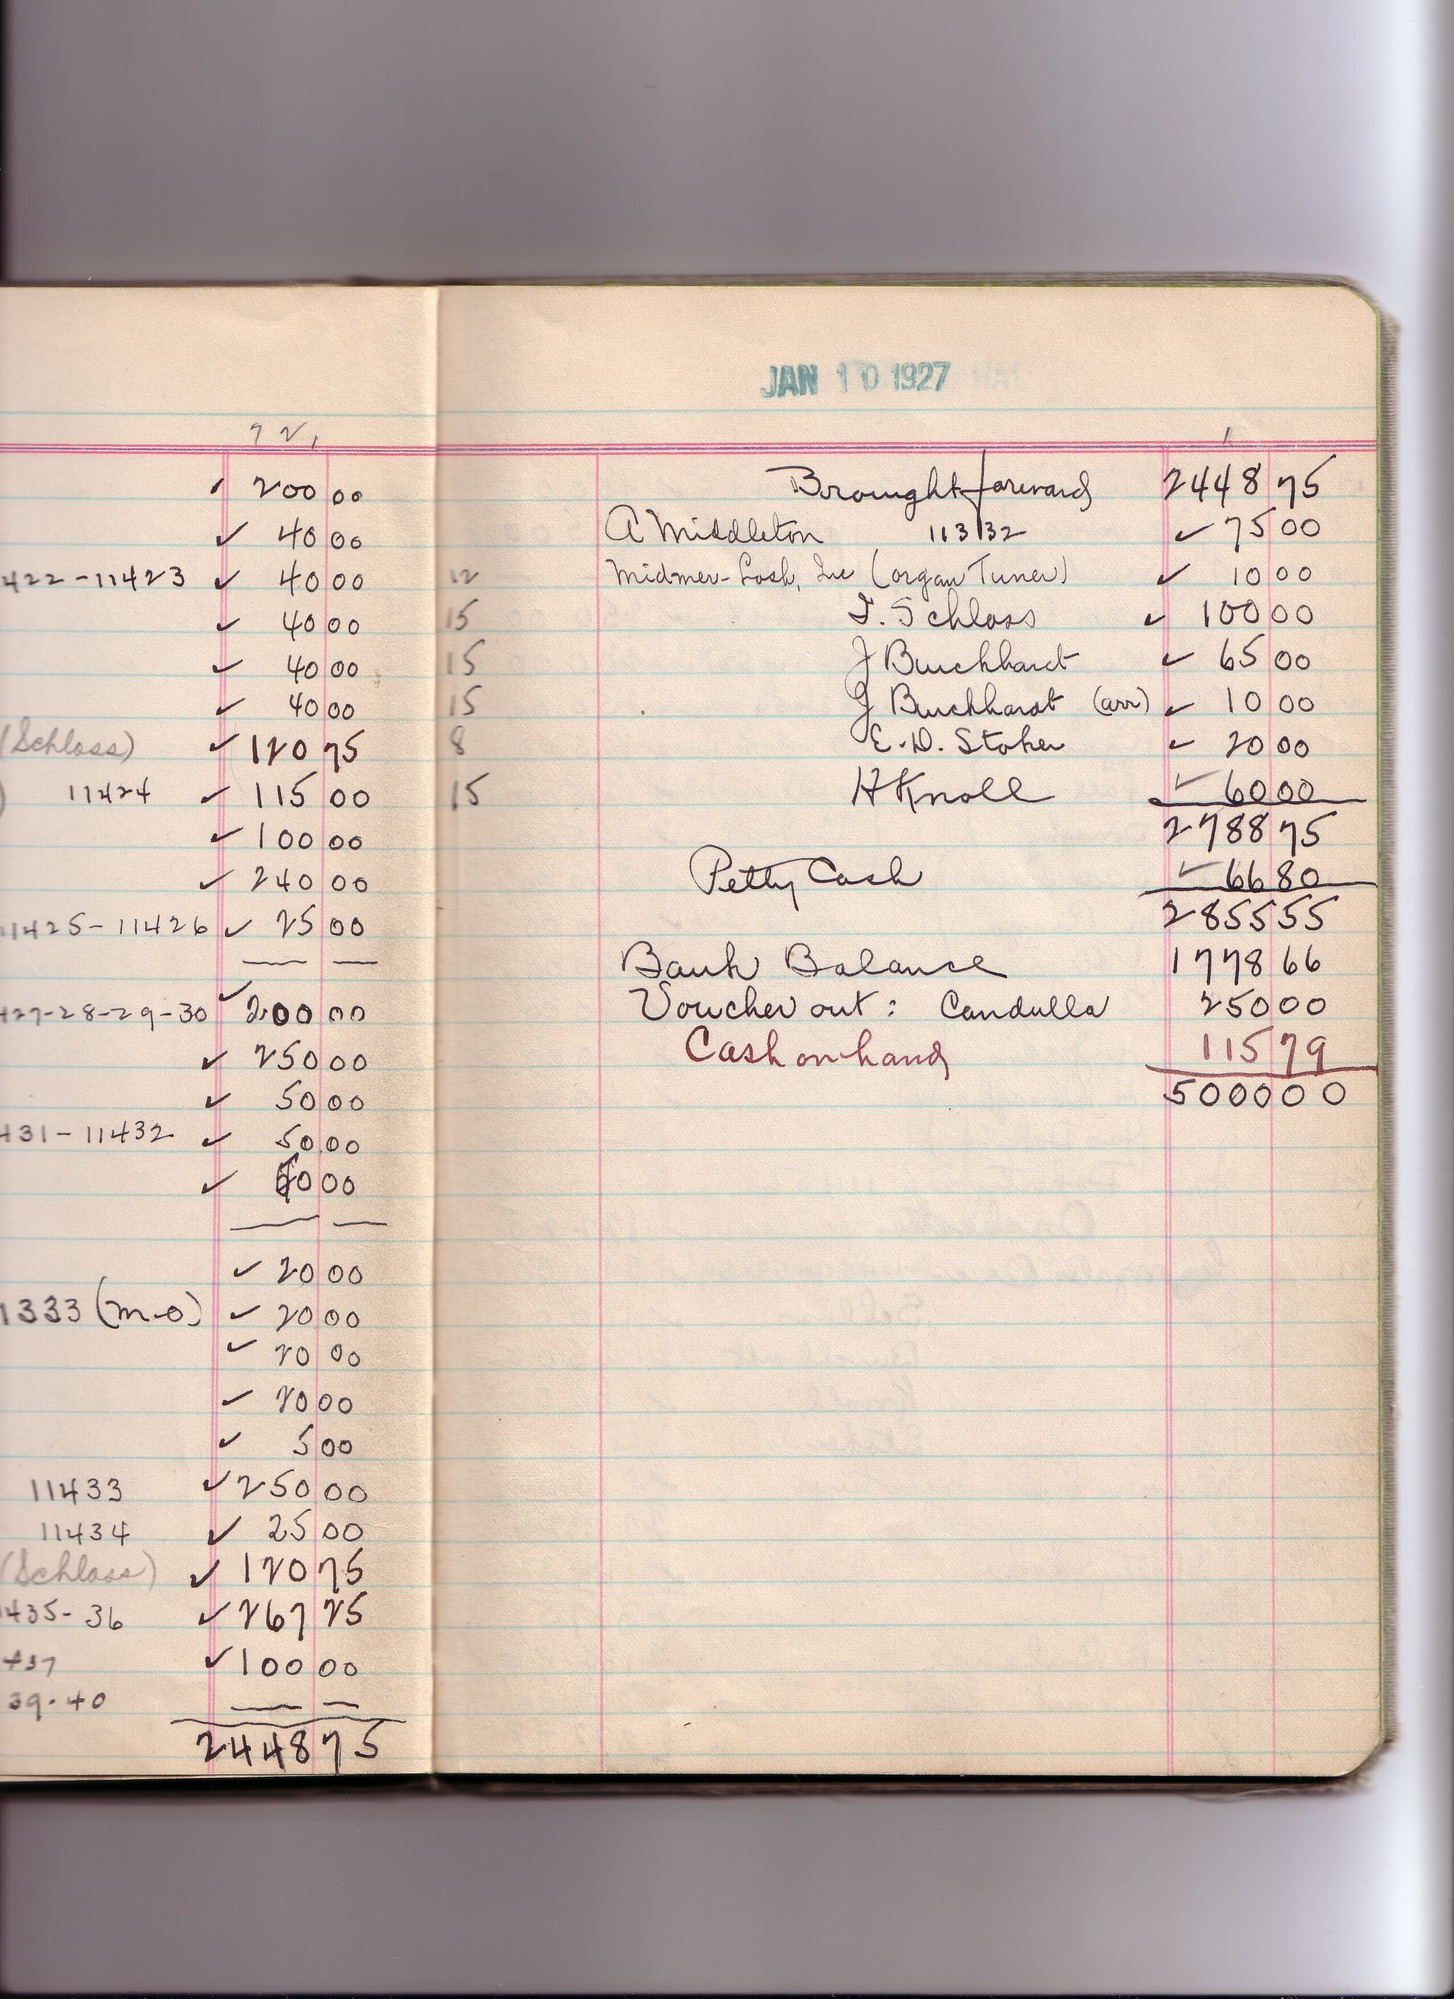 200 00
40 00
422-11423 ✓ 40 00
✓ 40 00
✓ 40 00
✓ 40 00
(Schloss) ✓ 120 75
) 11424 ✓ 115 00
✓ 100 00
✓ 240 00
11425-11426 ✓ 25 00
427-28-29-30 ✓ 200 00
✓ 250 00
✓ 50 00
431-11432 ✓ 50 00
✓ 60 00
✓ 20 00
1333 (m-o) ✓ 20 00
✓ 20 00
✓ 20 00
✓ 5 00
11433 ✓ 250 00
11434 ✓ 25 00
(Schloss) ✓ 120 75
435-36 ✓ 267 25
437 ✓ 100 00
39-40
2448 75
JAN 10 1927
Brought forward 2448 75
A Middleton 11332 ✓ 75 00
12 Midmer-Losh, Inc (organ Tuner) ✓ 10 00
15 I. Schloss ✓ 100 00
15 J Burckhardt ✓ 65 00
15 J Burckhardt (arr) ✓ 10 00
8 E.D. Stoker ✓ 20 00
15 H Knoll ✓ 60 00
2788 75
Petty Cash ✓ 66 80
2855 55
Bank Balance 1778 66
Voucher out: Candulla 250 00
Cash on hand 115 79
5000 00